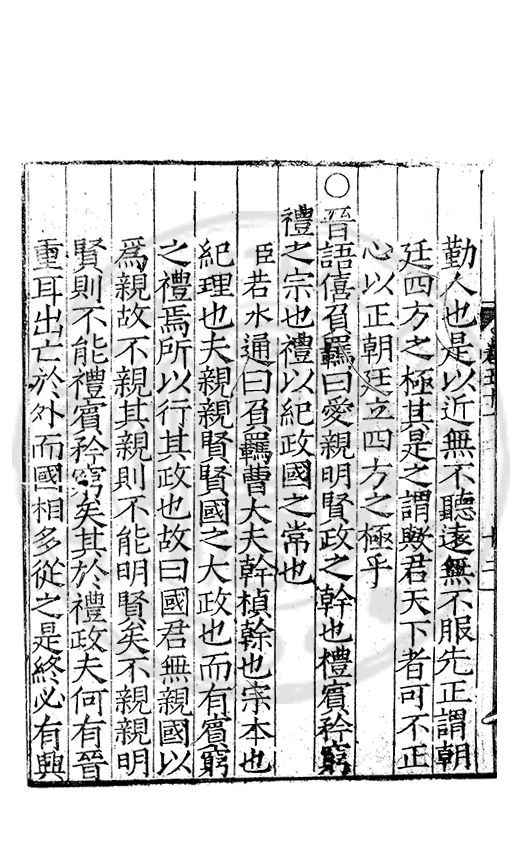 勤人也是以近無不聽遠無不服先正謂朝
廷四方之極其是之謂歟君天下者可不正
心以正朝廷立四方之極乎
○晉語僖負羈曰愛親明賢政之幹也禮賓矜窮
禮之宗也禮以紀政國之常也
臣若水通曰負羈曹大夫幹楨榦也宗本也
紀理也夫親親賢賢國之大政也而有賓窮
之禮焉所以行其政也故曰國君無親國以
爲親故不親其親則不能明賢矣不親親明
賢則不能禮賓矜窮矣其於禮政夫何有晉
重耳出亡於外而國相多從之是終必有興